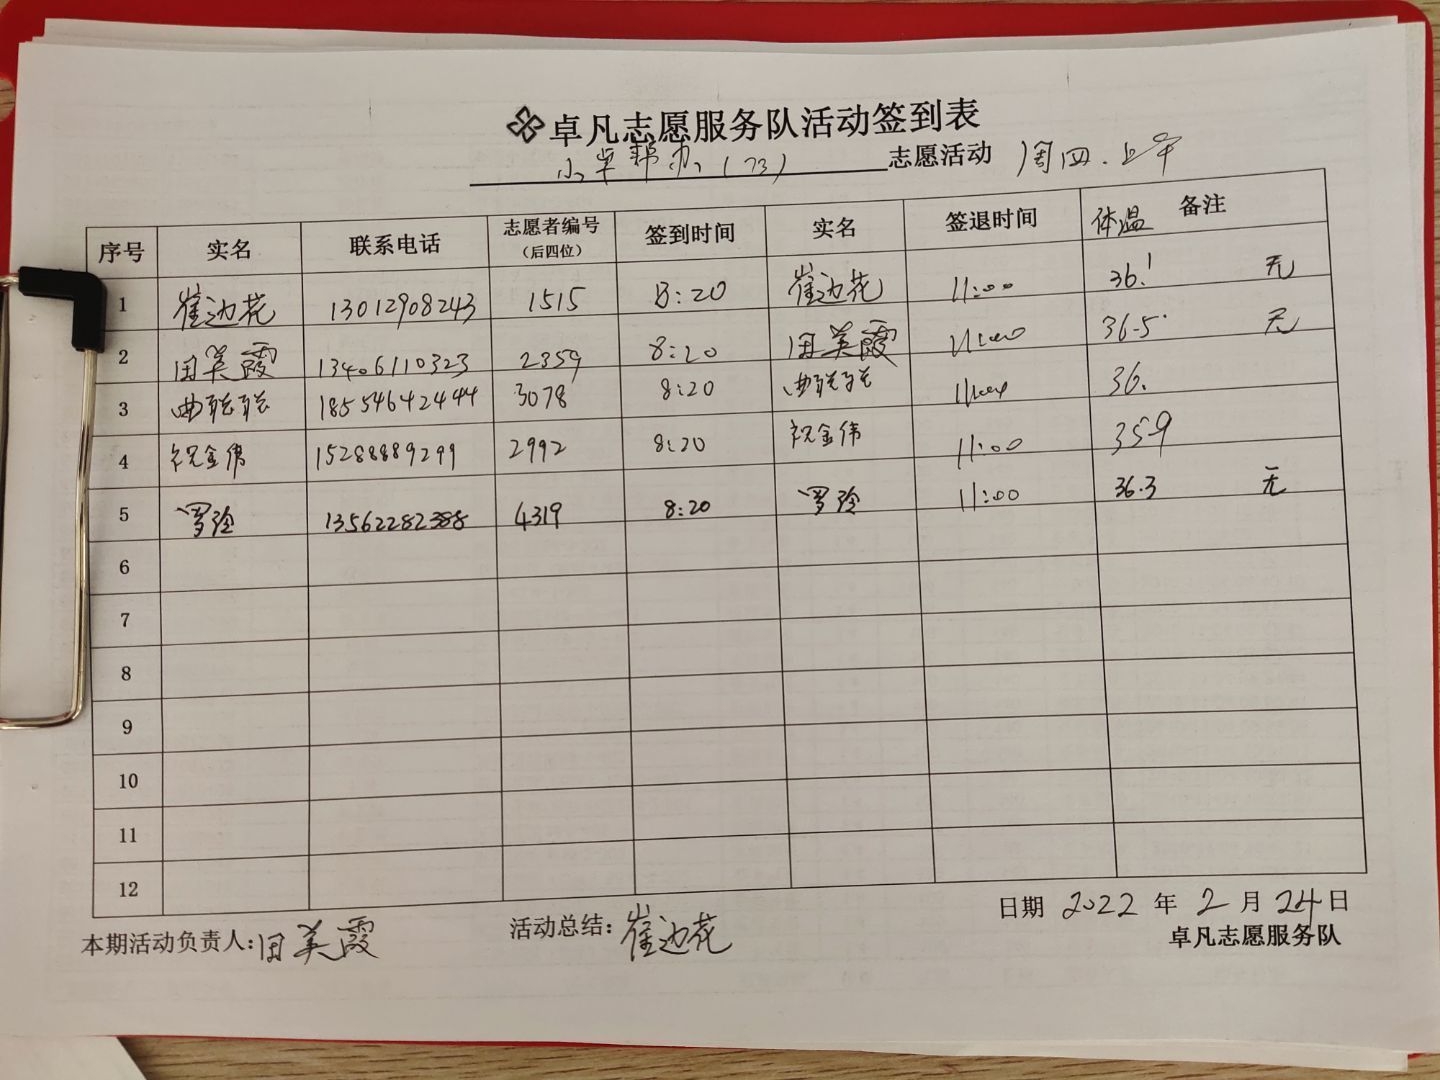 卓凡志愿服务队活动签到表
小卓帮办(73) 志愿活动 周四.上午
序号 实名 联系电话 志愿者编号(后四位) 签到时间 实名 签退时间 体温 备注
1 崔边花 13012908243 1515 8:20 崔边花 11:00 36.1 无
2 田美霞 13406110323 2359 8:20 田美霞 11:00 36.5 无
3 曲联联 18554642444 3078 8:20 曲联联 36.
4 祝金伟 15288889299 2992 8:20 祝金伟 11:00 35.9
5 罗玲 13562282388 4319 8:20 罗玲 11:00 36.3 无
6
7
8
9
10
11
12
日期 2022 年 2 月 24 日
本期活动负责人: 田美霞 活动总结: 崔边花
卓凡志愿服务队